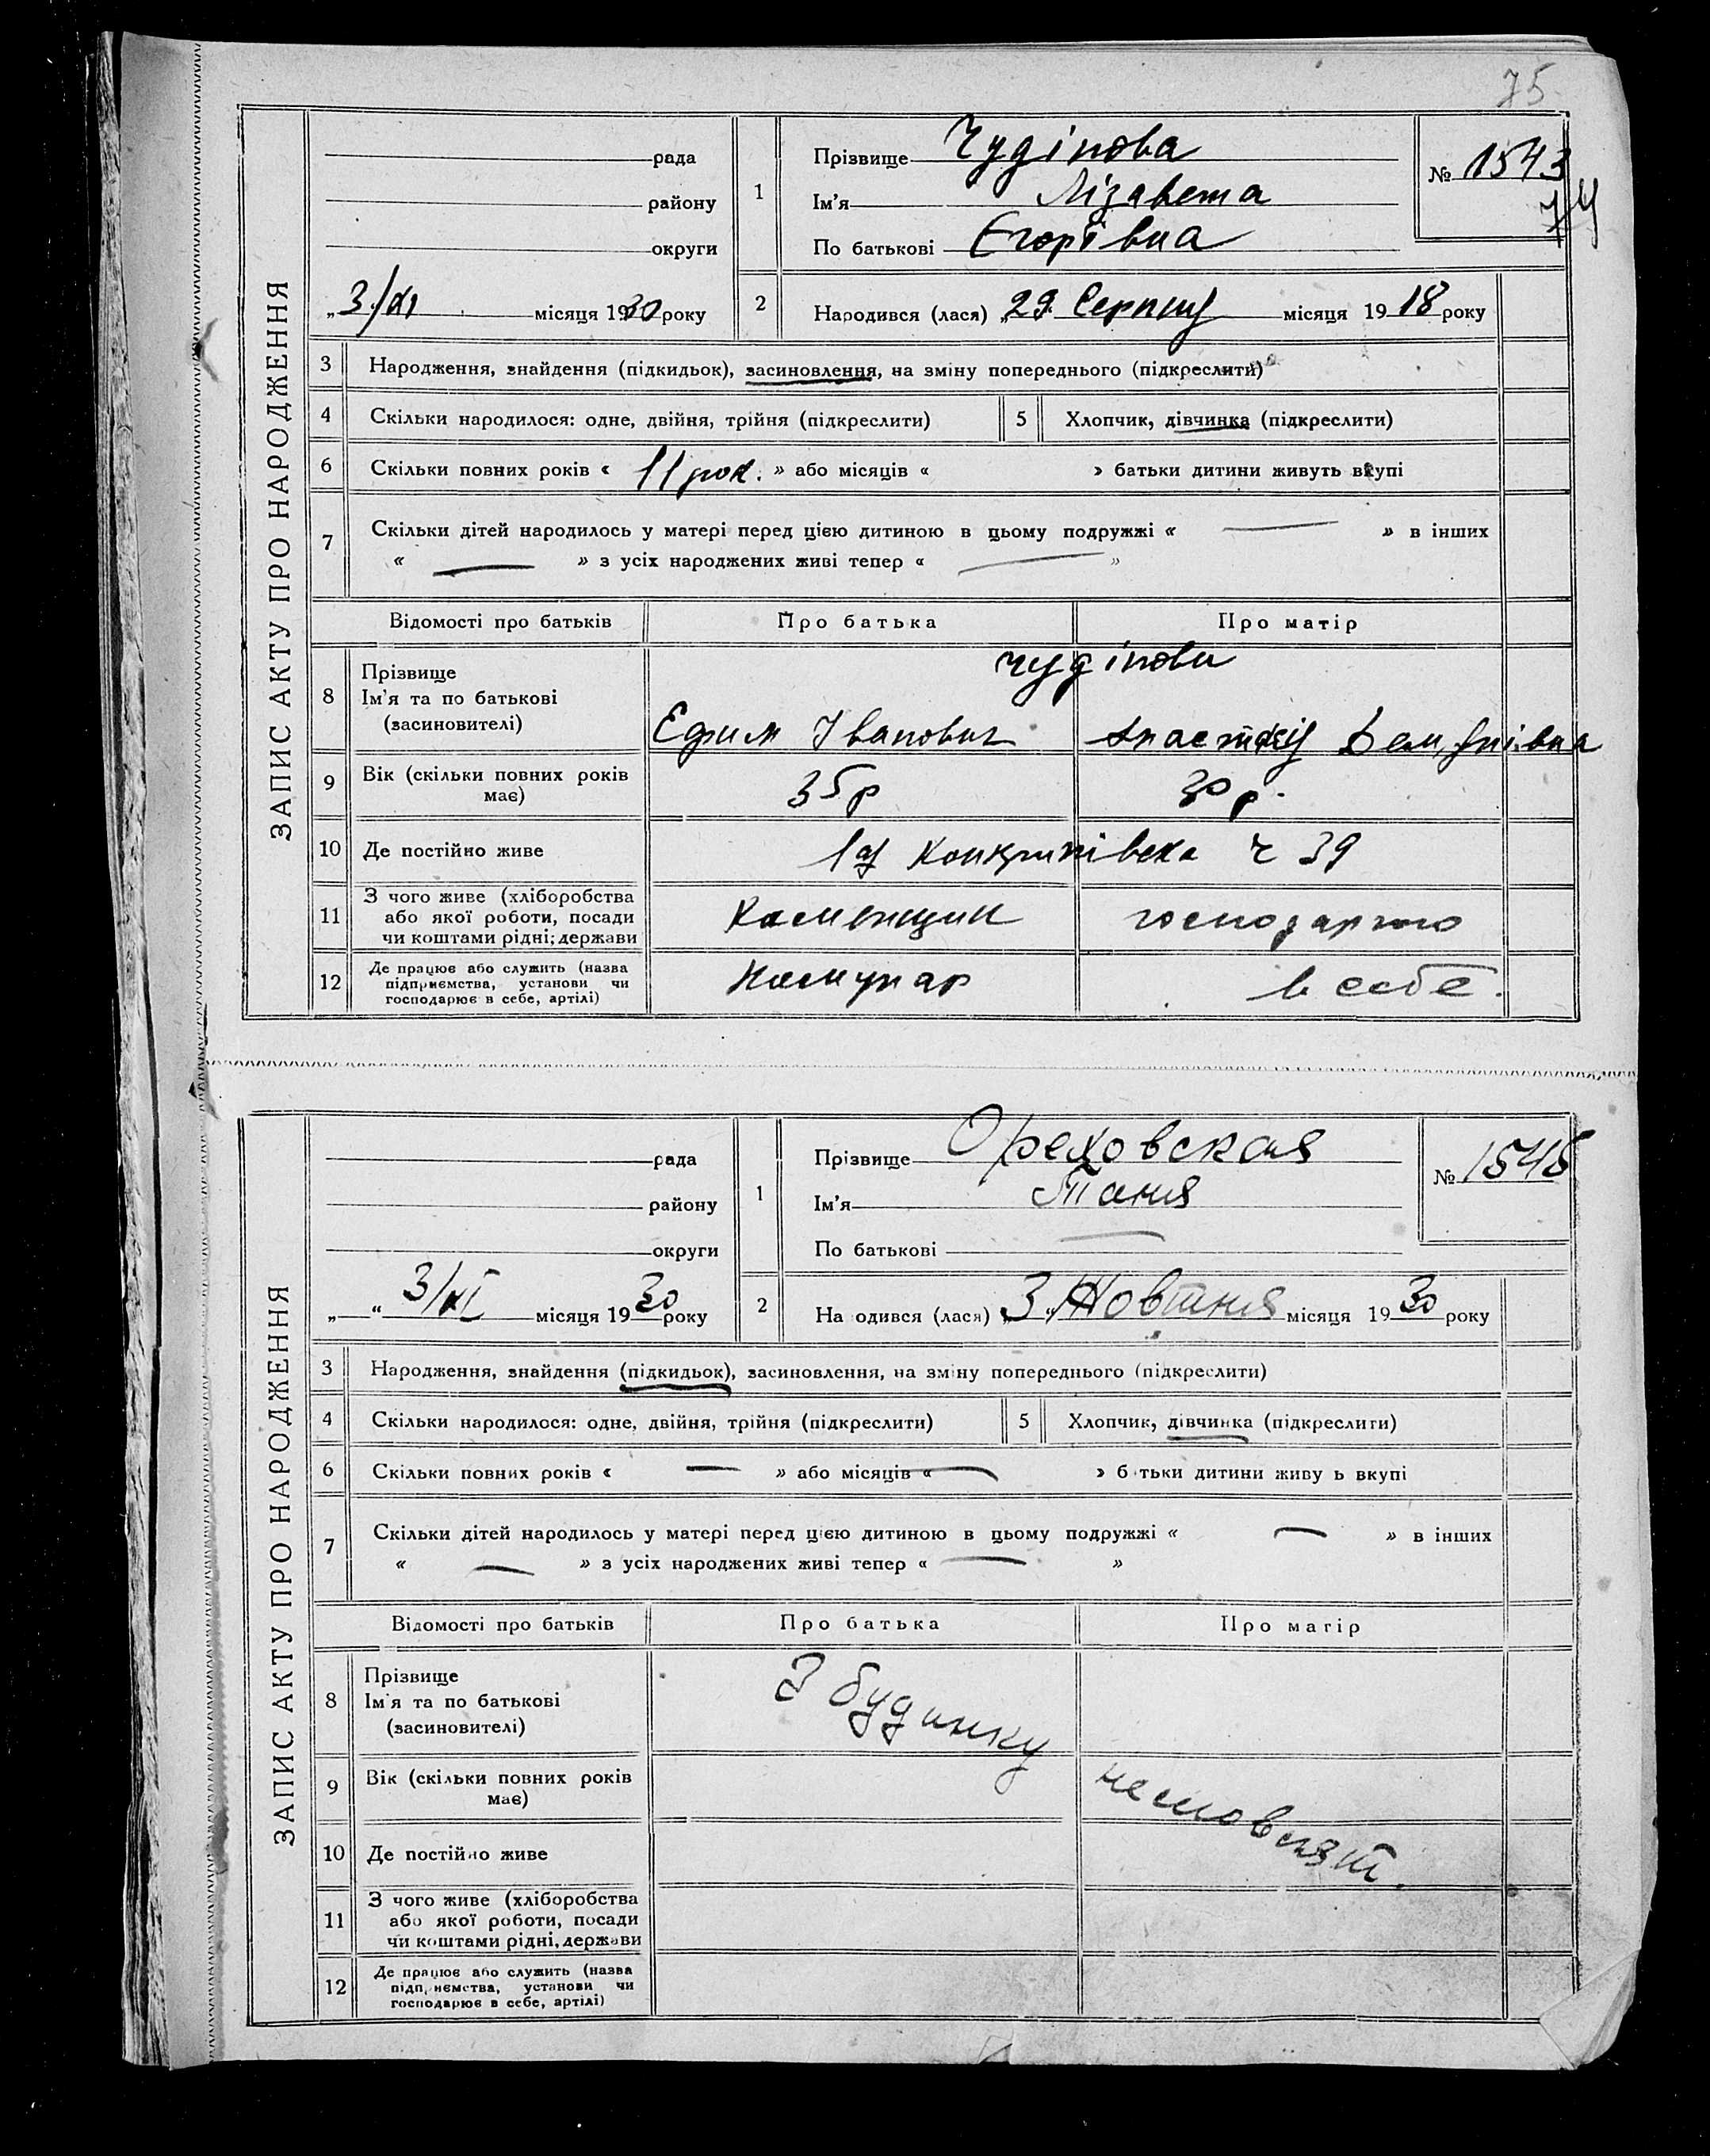 75
ЗАПИС АКТУ ПРО НАРОДЖЕННЯ
рада
району
округи
„3/XI місяця 1930 року
1
Прізвище Чудінова
Ім'я Лізавета
По батькові Єгорівна
№ 1543
74
2 Народився (лася) „29 Серпня місяця 1918 року
3 Народження, знайдення (підкидьок), засиновлення, на зміну попереднього (підкреслити)
4 Скільки народилося: одне, двійня, трійня (підкреслити) 5 Хлопчик, дівчинка (підкреслити)
6 Скільки повних років « 11 рок. » або місяців « » батьки дитини живуть вкупі
7 Скільки дітей народилось у матері перед цією дитиною в цьому подружжі « — » в інших
« — » з усіх народжених живі тепер « — »
Відомості про батьків Про батька Про матір
8 Прізвище
Ім'я та по батькові
(засиновителі)
Чудінови
Ефим Іванович
9 Вік (скільки повних років має) 35р 30 р.
10 Де постійно живе ч 39
11 З чого живе (хліборобства або якої роботи, посади чи коштами рідні; держави Каменщик господаркою
12 Де працює або служить (назва підприємства, установи чи господарює в себе, артілі) в себе.
ЗАПИС АКТУ ПРО НАРОДЖЕННЯ
рада
району
округи
„ “ 3/XI місяця 1930 року
1
Прізвище Ореховская
Ім'я Таня
По батькові —
№ 1545
2 На одився (лася) „3“ Жовтня місяця 1930 року
3 Народження, знайдення (підкидьок), засиновлення, на зміну попереднього (підкреслити)
4 Скільки народилося: одне, двійня, трійня (підкреслити) 5 Хлопчик, дівчинка (підкреслити)
6 Скільки повних років « — » або місяців « — » б тьки дитини живу ь вкупі
7 Скільки дітей народилось у матері перед цією дитиною в цьому подружжі « — » в інших
« — » з усіх народжених живі тепер « — »
Відомості про батьків Про батька Про матір
8 Прізвище
Ім'я та по батькові
(засиновителі)
З будинку
немовлят.
9 Вік (скільки повних років має)
10 Де постійно живе
11 З чого живе (хліборобства або якої роботи, посади чи коштами рідні, держави
12 Де працює або служить (назва підприємства, установи чи господарює в себе, артілі)